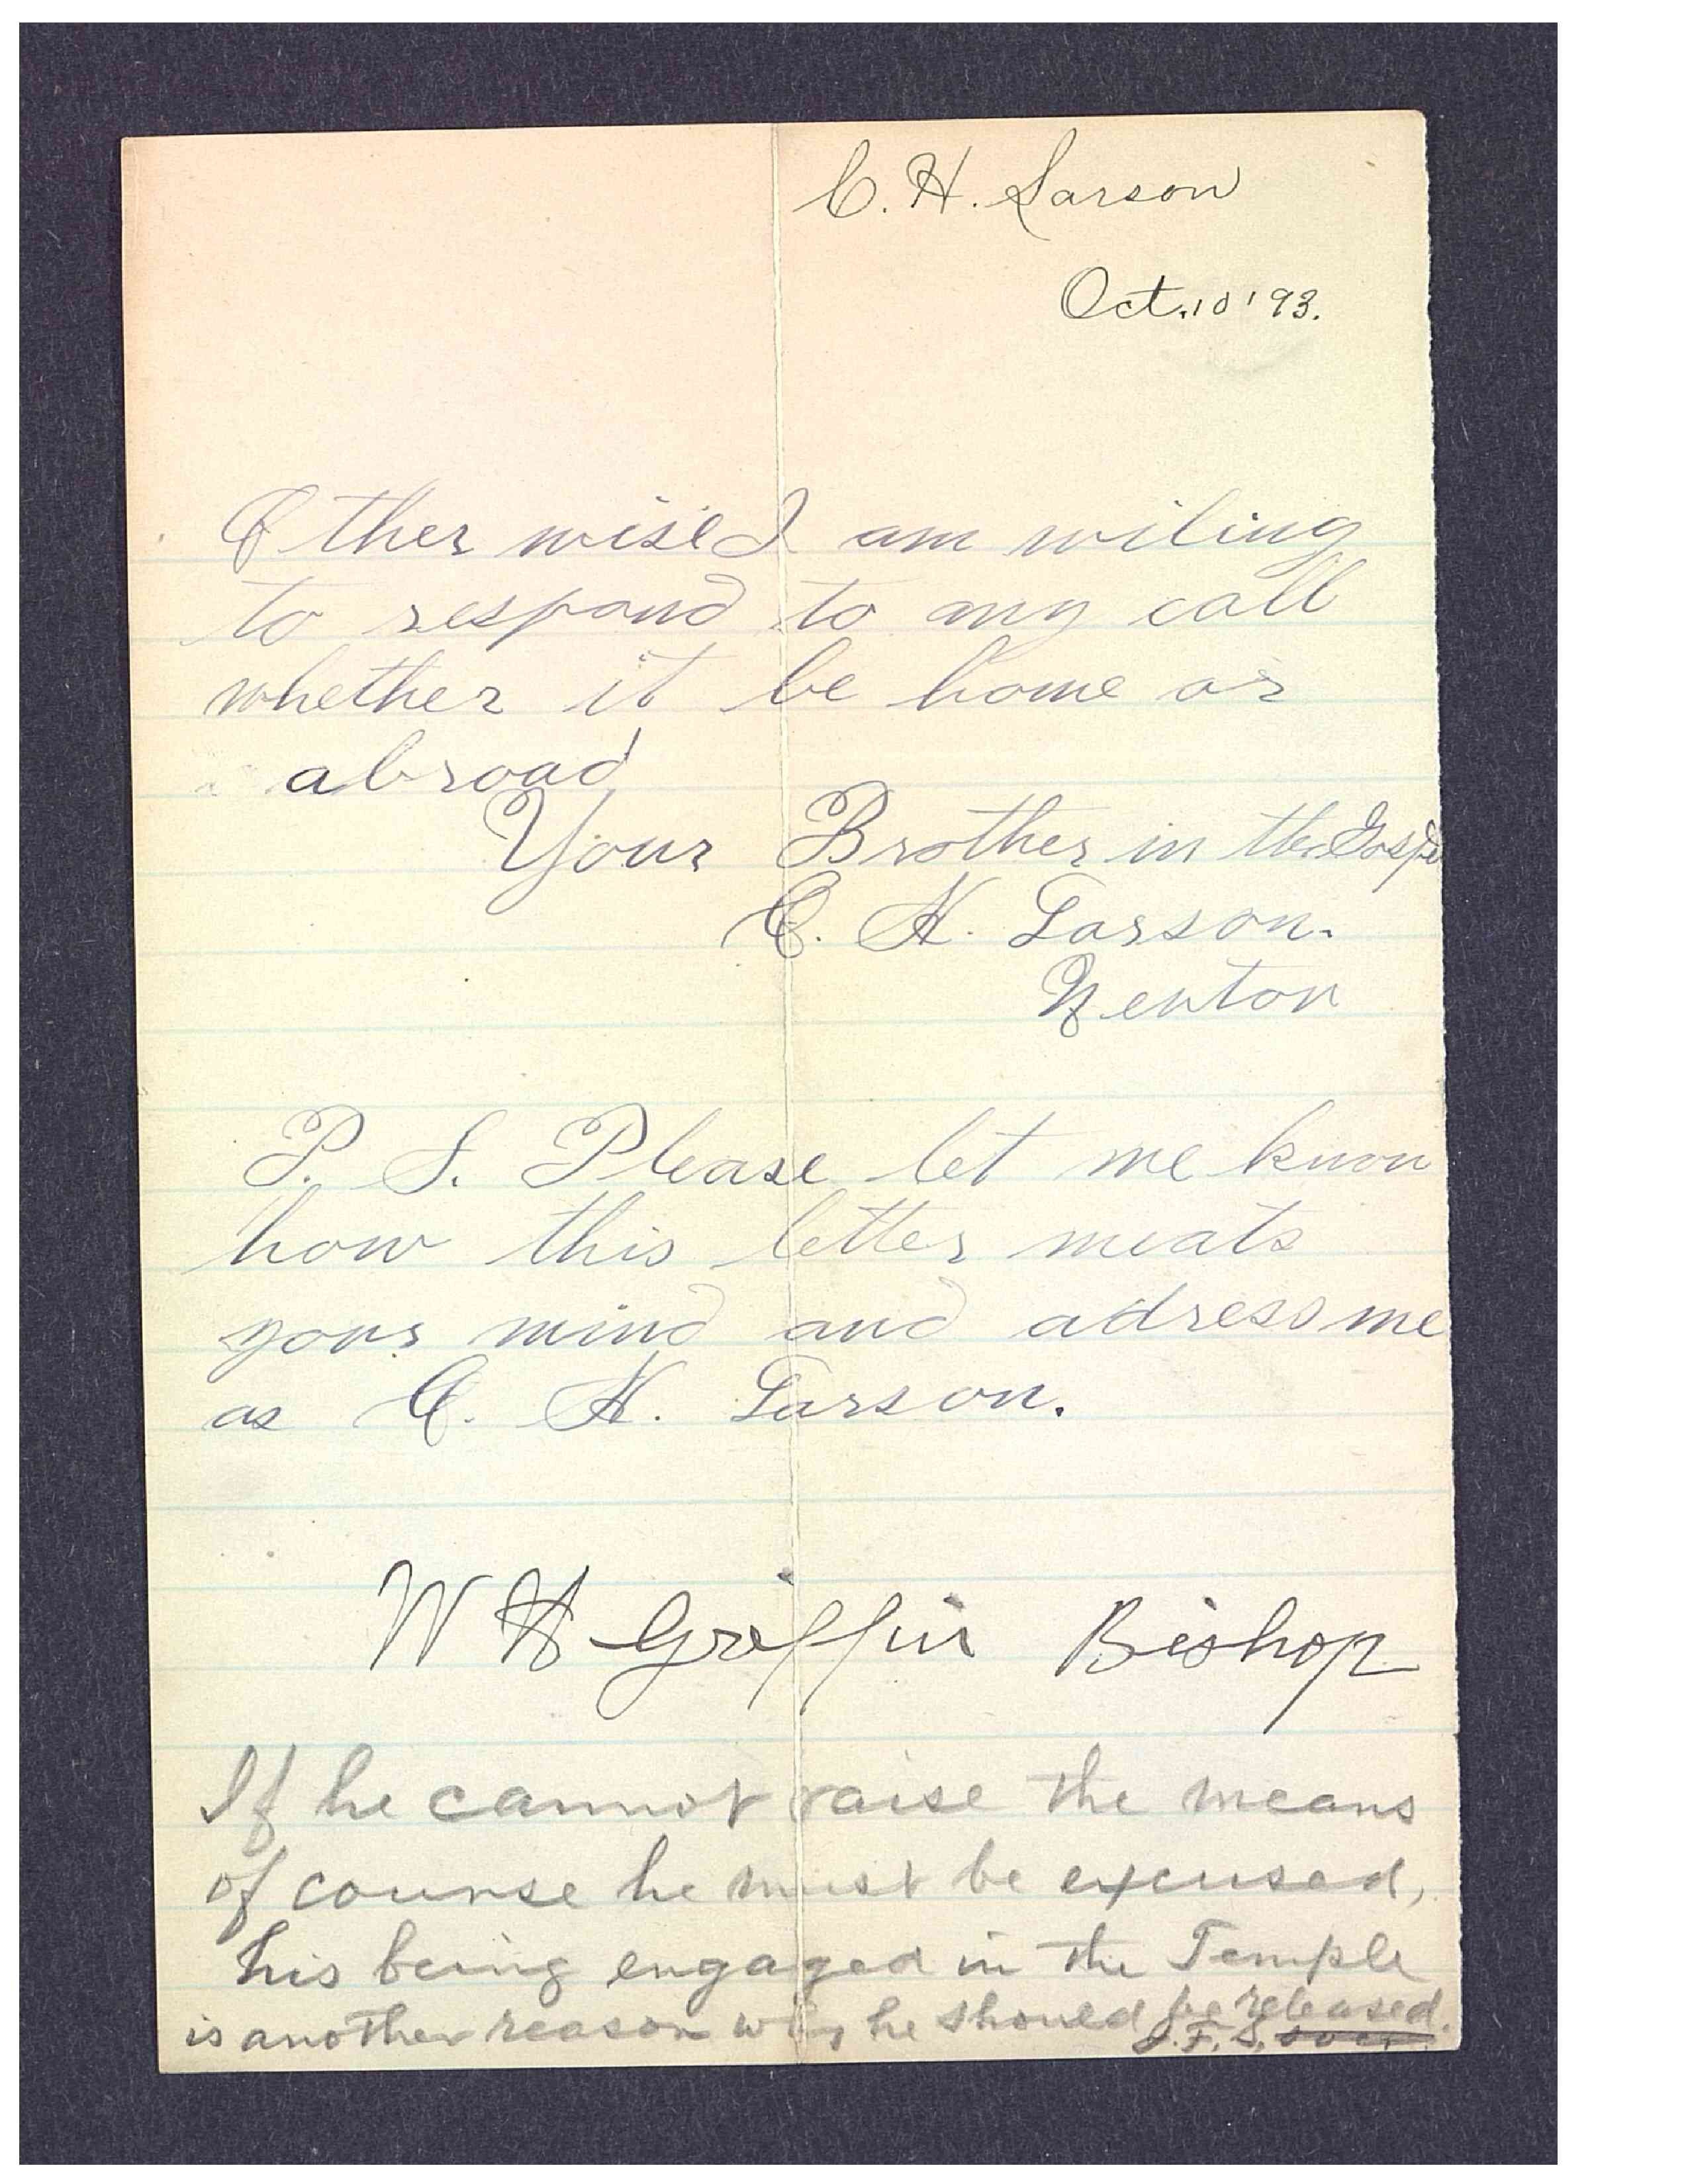 C. H. Larson
Oct. 10 '93.
Other wise I am wiling
to respond to any call
whether it be home or
abroad
Your Brother in the Gospel
C. H. Larson.
Newton
P. S. Please let me know
how this letter meats
your mind and adress me
as C. H. Larson.
W H Griffin Bishop
If he cannot raise the means
of course he must be excused,
his being engaged in the Temple
is another reason why he should be released.
J. F. S. over